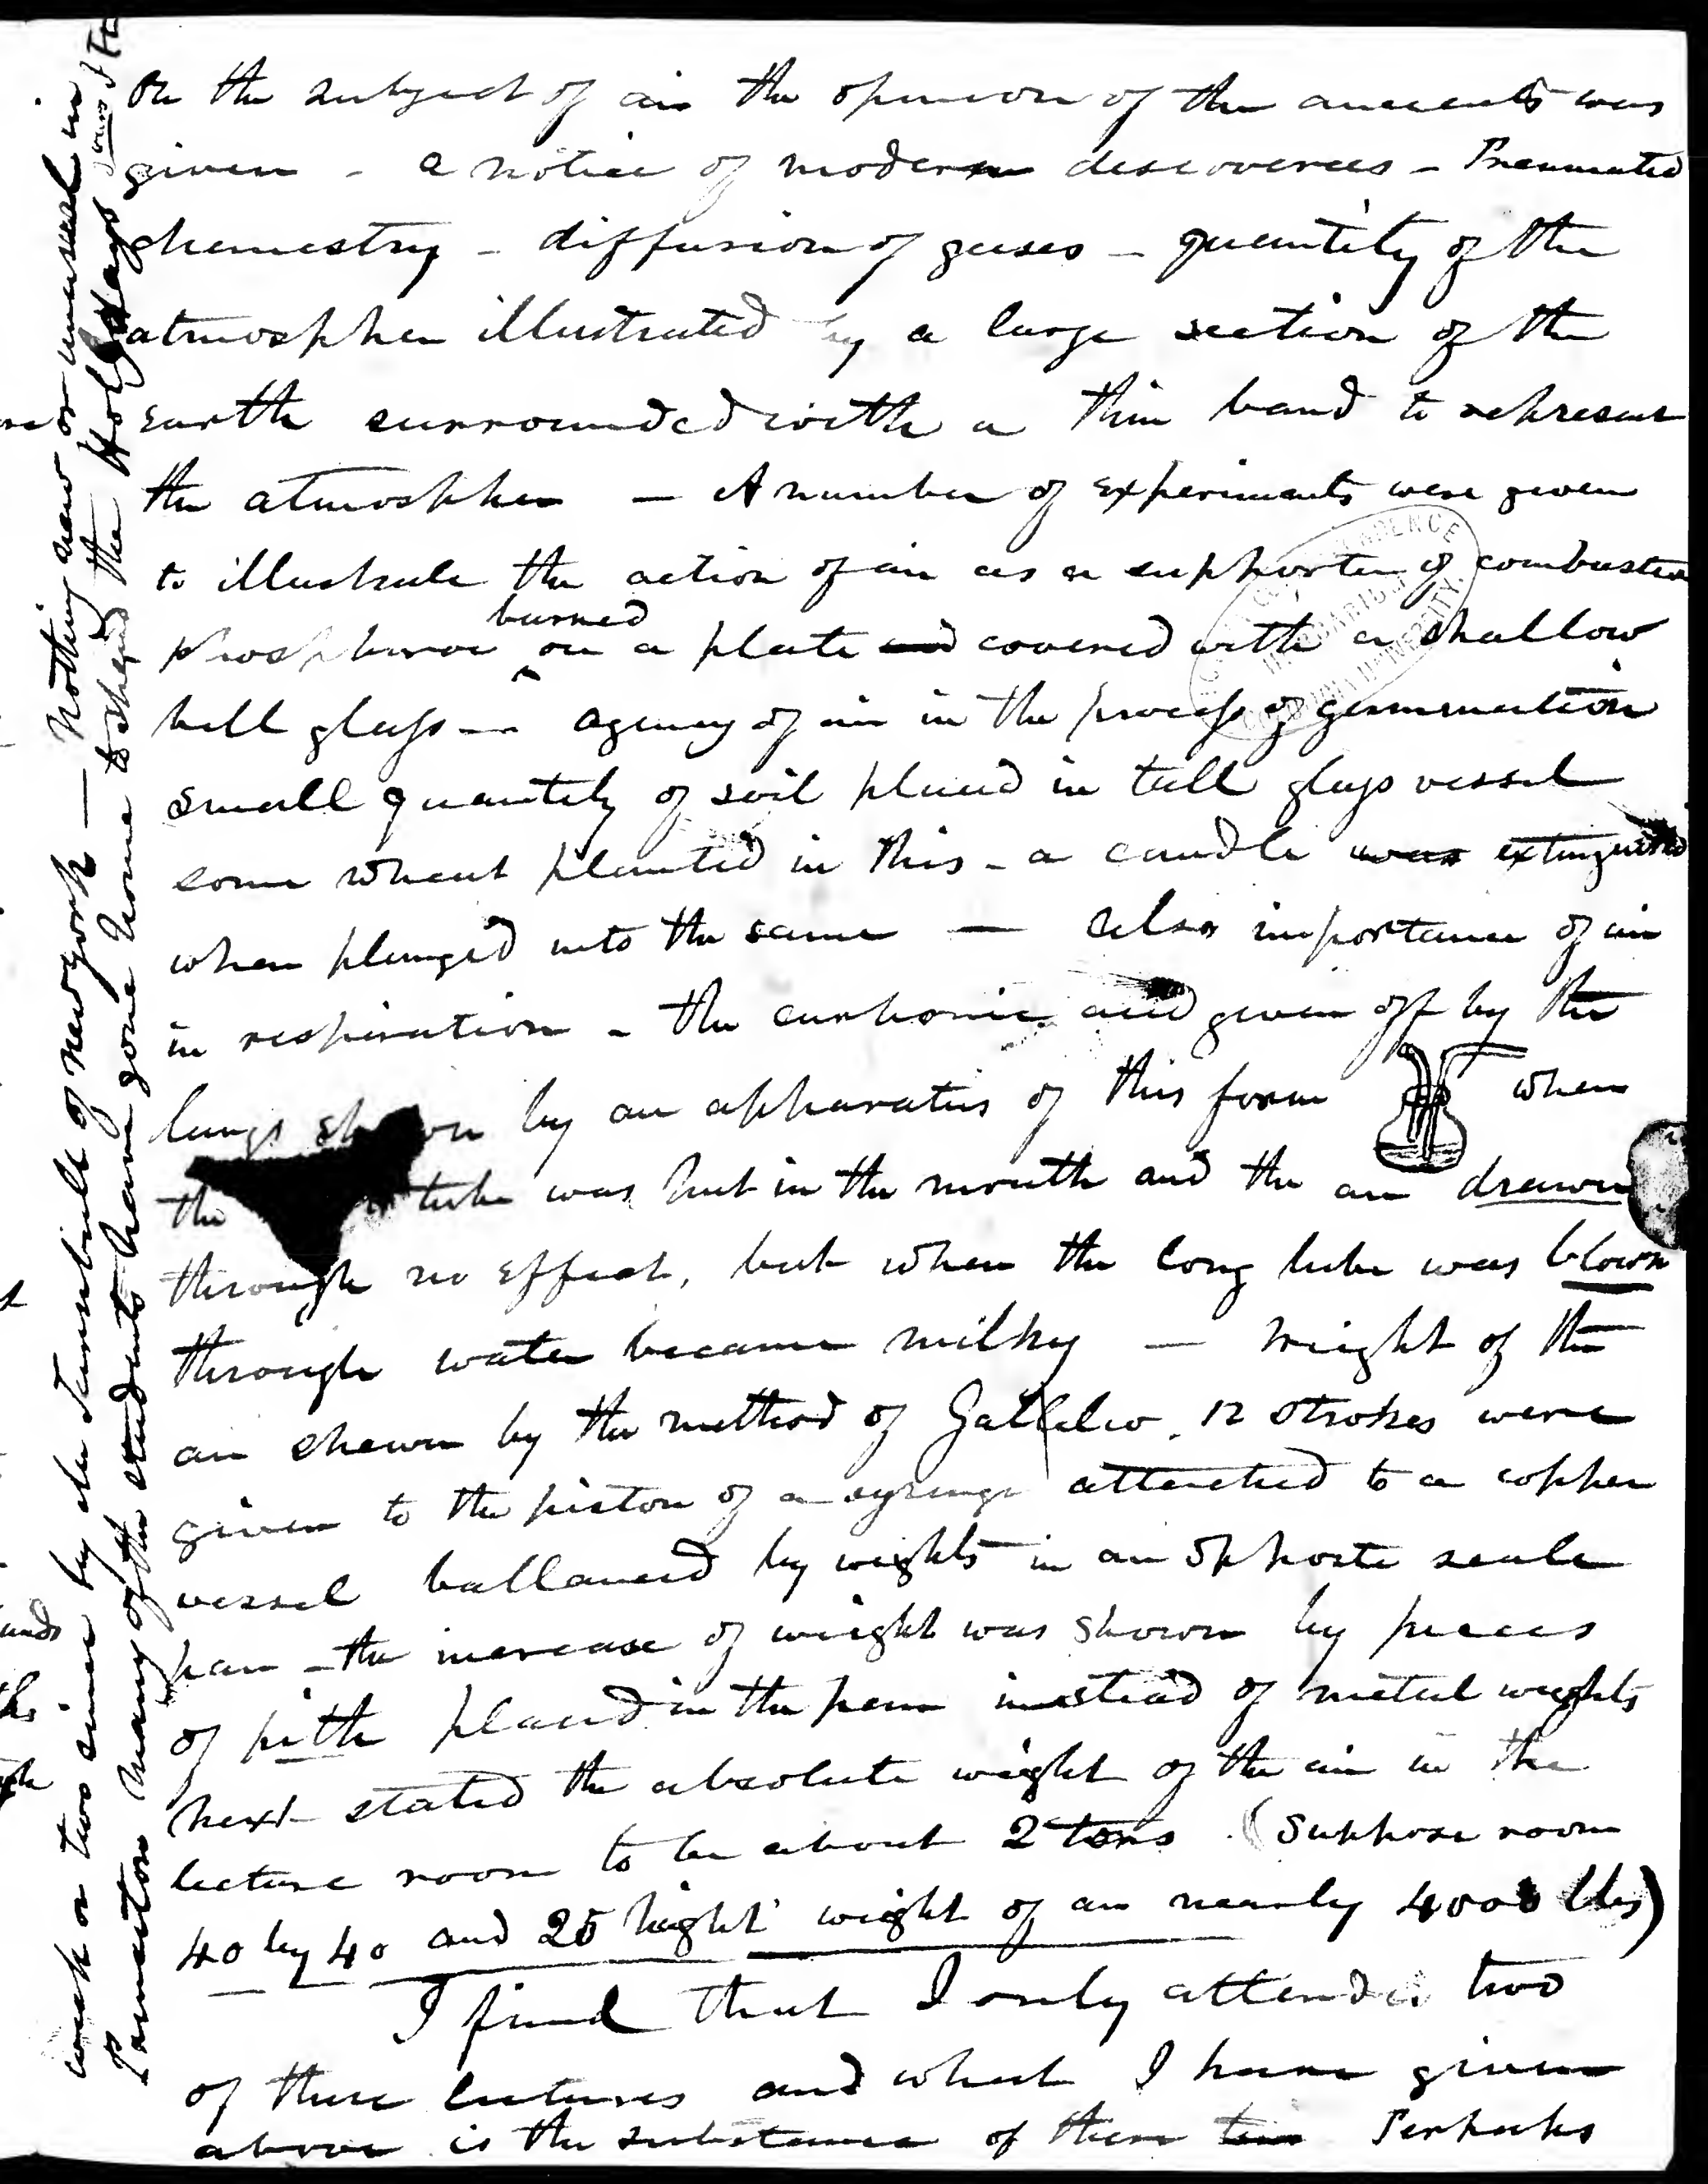 On the subject of air the opinion of the ancients was
given - a notice of modern discoveries - Pneumatic
chemestry - diffusion of gases - quantity of the
atmospher illustrated by a large section of the
Earth surrounded with a thin band to represent
the atmospher - A number of experiments were given
to illustrate the action of air as a supporter of combustion
burned
Phosphorus ^ on a plate and covered with a shallow
bell glass - agency of air in the process of germination
small quantity of soil placed in tall glass vessel
some wheat planted in this - a candle was extinguished
when plunged into the same - also importance of air
in respiration - the carbonic acid given off by the
lungs shown by an apparatus of this form when
the tube was put in the mouth and the air drawn
through no effect, but when the long tube was blown
through water became milky - weight of the
air shewn by the method of Gallileo. 12 strokes were
given to the piston of a syringe attatched to a copper
vessel ballanced by weights in an opposite scale
pan - the increase of weight was shown by pieces
of pith placed in the pan instead of metal weights
next stated the absolute weight of the air in the
lecture room to be about 2 tons. (Suppose room
40 by 40 and 25 hight weight of air nearly 4000 lbs)
I find that I only attended two
of these lectures and what I have given
above is the substance of them Perhaps
week or two since by the Turnbulls of newyork - Nothing new or unusual in
Princeton many of the students have gone home to spend the Holydays yours